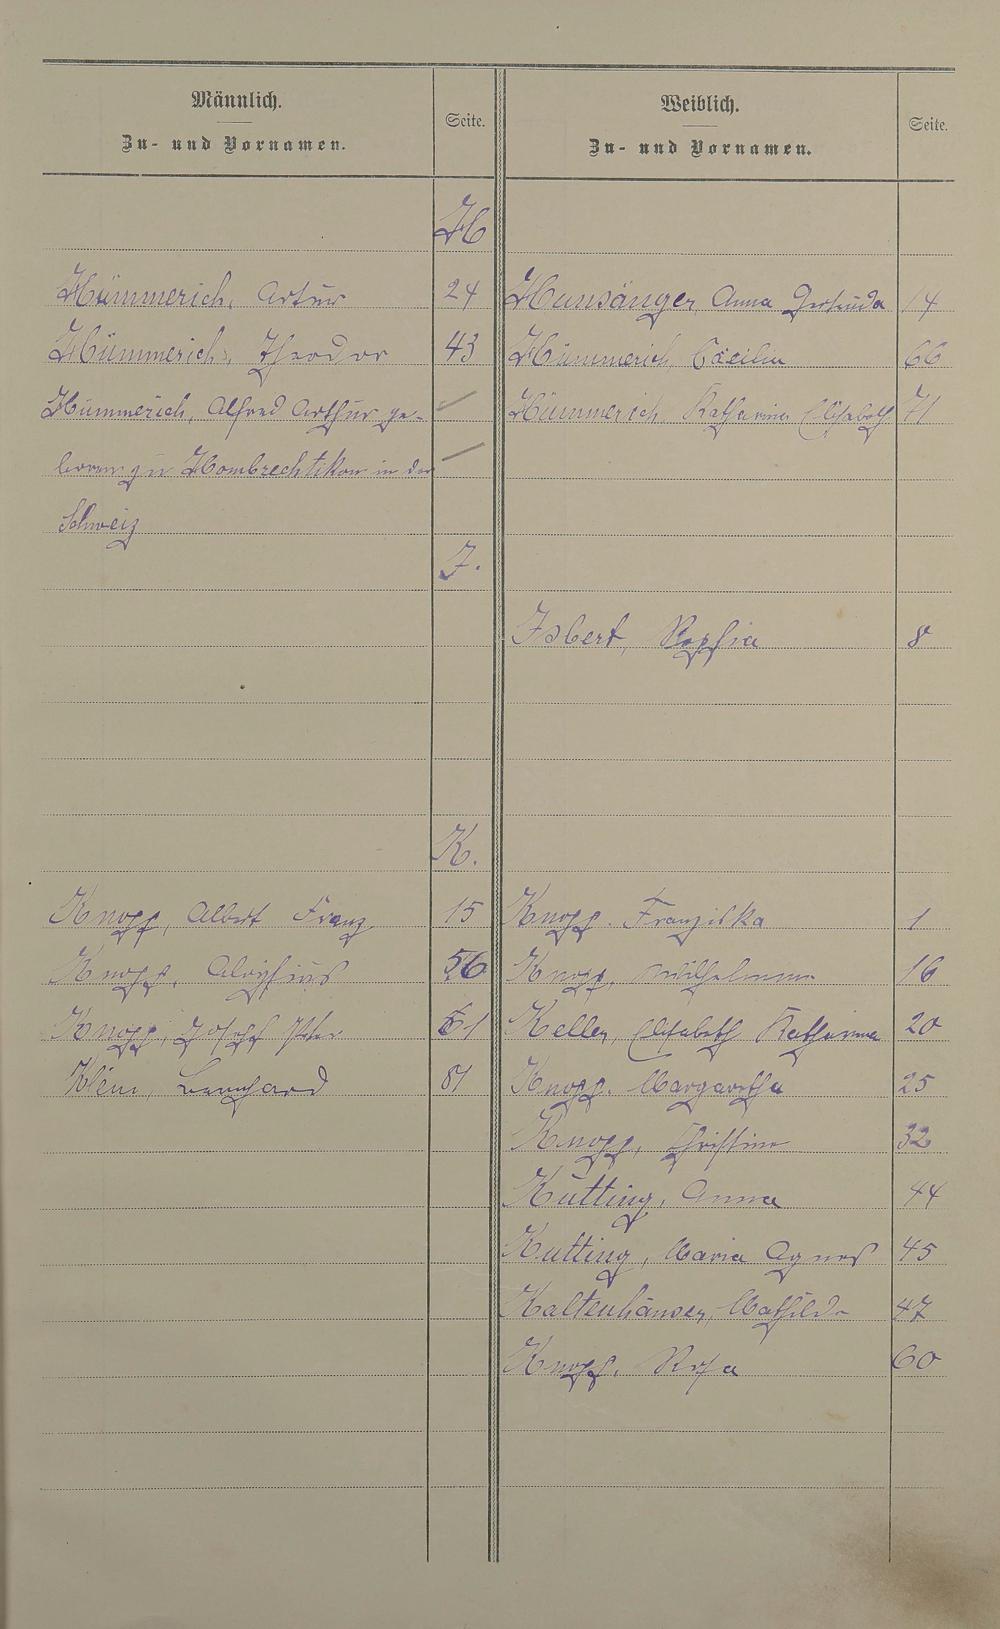 Männlich.
Zu- und Vornamen.
Seite.
Weiblich.
Zu- und Vornamen.
Seite.
H
Hümmerich, Artur 24 Hunsänger, Anna Gertruda 14
Hümmerich, Theodor 43 Hümmerich, Cäcilia 66
Hümmerich, Alfred Arthur ge- Hümmerich, Katharina Elisabeth 71
boren zu Hombrechtikon in der
Schweiz
J.
Isbert, Sophia 8
K.
Knopp, Albert Franz 15 Knopp. Franziska 1
Knopp, Aloysius 56 Knopp, Wilhelmina 16
Knopp, Joseph Peter 61 Keller, Elisabeth Katharina 20
Klein, Bernhard 81 Knopp. Margaretha 25
Knopp, Christine 32
Kutting, Anna 44
Kutting, Maria Agnes 45
Kaltenhäuser, Mathilde 47
Knopp, Rosa 60